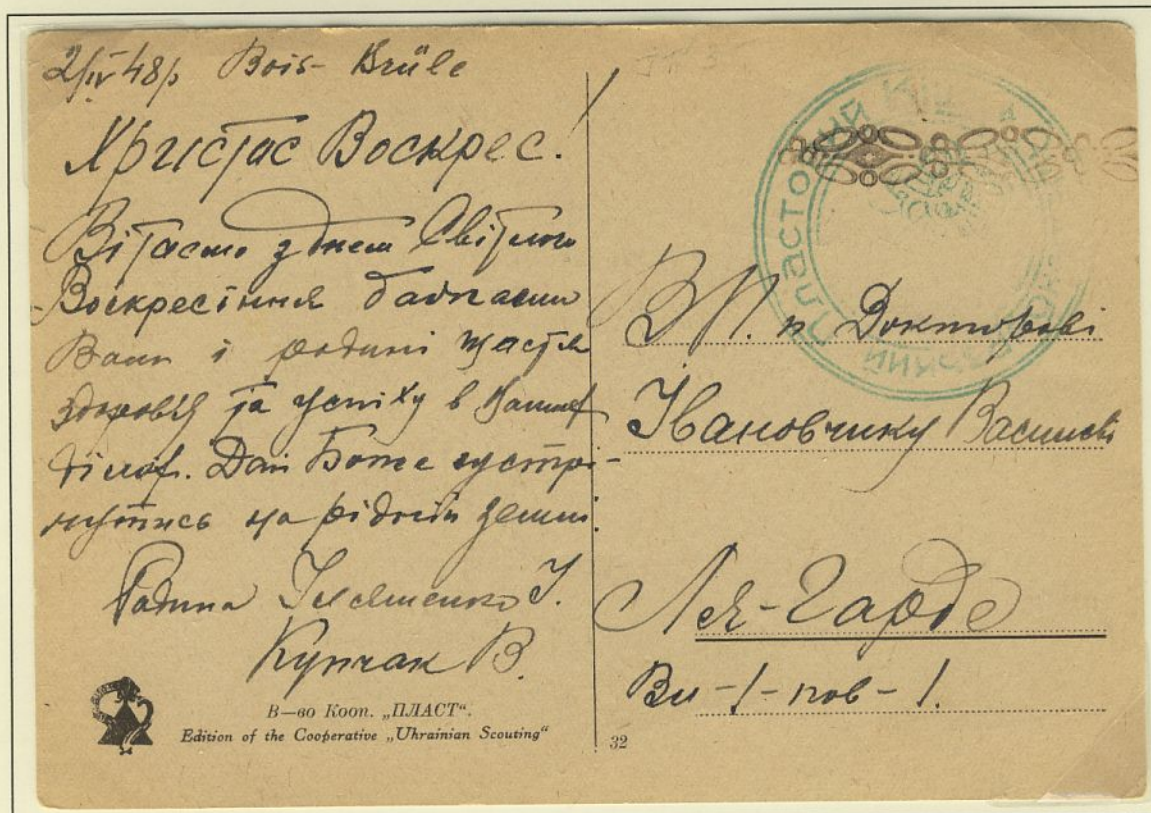 2/IV 48р Bois-Brüle
Христос Воскрес!
Вітаємо з днем Світлого
Воскресіння бажаєми
Вам і родині щастя
здоровʼя та успіху в Вашій
Дай Боже зустрі-
нутись на рідній землі.
Родина І.
Купчак В.
В—во Кооп. „ПЛАСТ“.
Edition of the Cooperative „Uhrainian Scouting“
32
Пластовий
ВП. п Докторові
Івановчику Василеві
Ля-Гарде
Ви-1-пов-1.